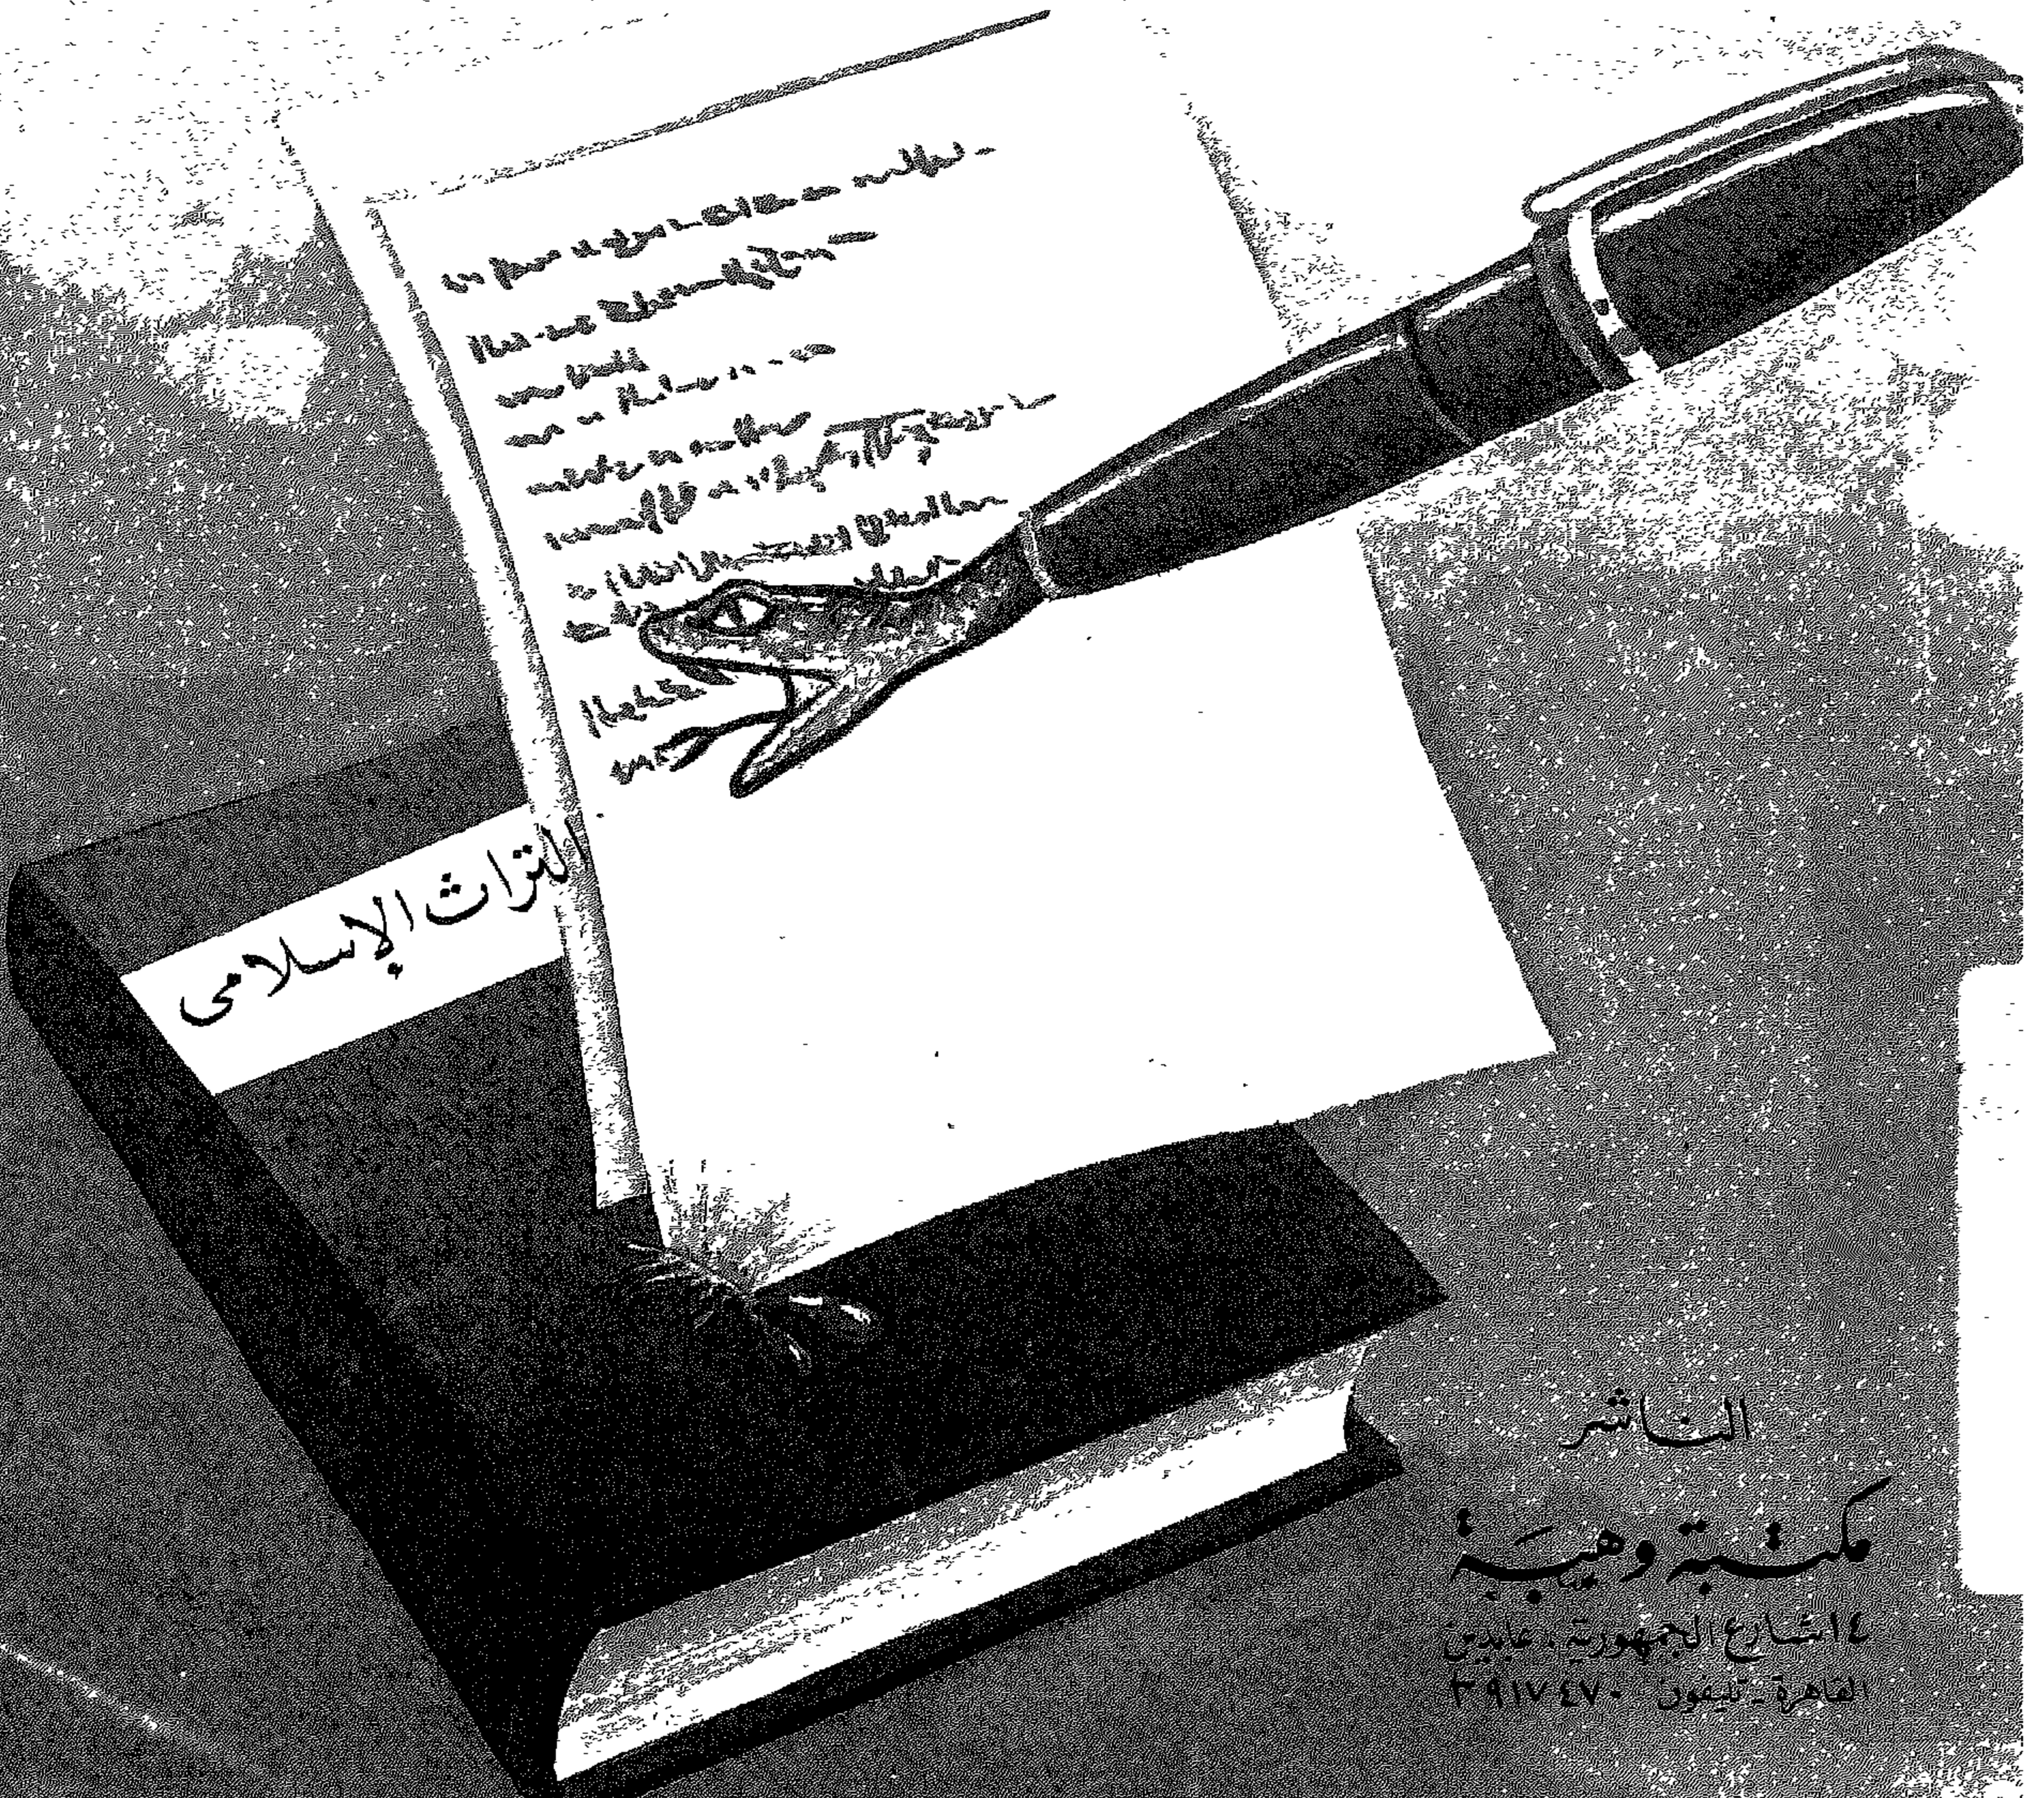 التراث الإسلامى
الناشر
مكتبة وهيبة
١٤ شارع الجمهورية . عابدين
القاهرة - تليفون ٣٩١٧٤٧٠